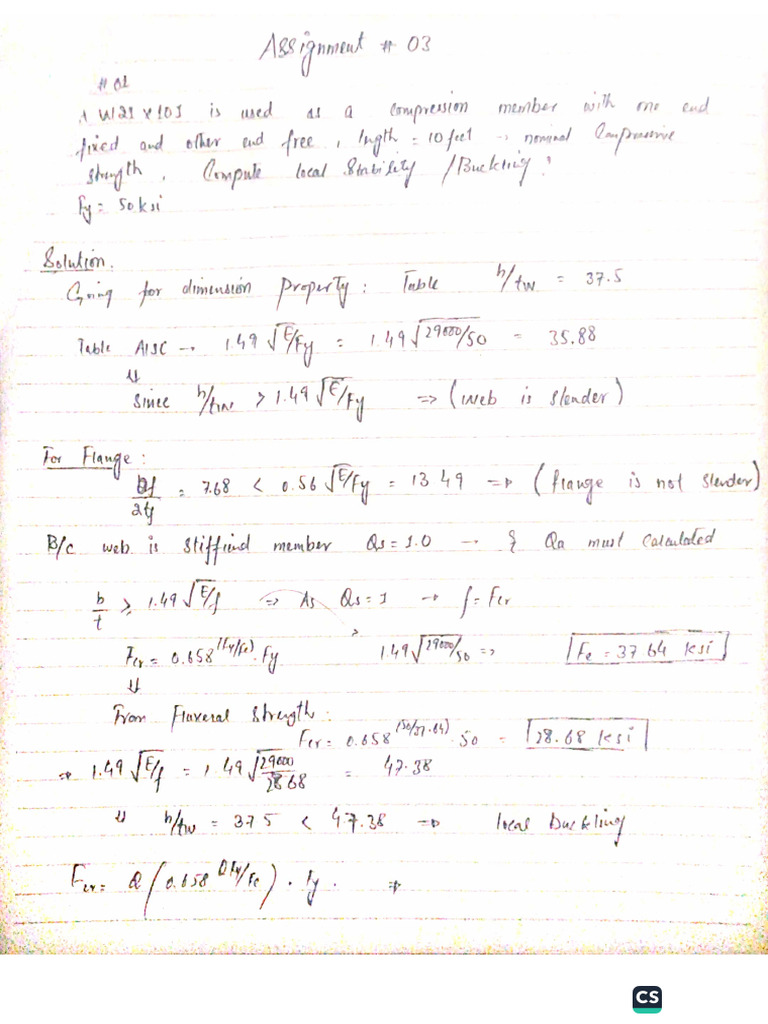 Assignment # 03
# 01
A W21 x 101 is used as a compression member with one end
fixed and other end free, lngth = 10 feet → nominal Compressive
strength, Compute local Stability / Buckling?
Fy = 50 ksi
Solution.
Going for dimension Property: Table h/tw = 37.5
Table AISC → 1.49 √E/Fy = 1.49 √29000/50 = 35.88
⇓
Since h/tw > 1.49 √E/Fy => (web is slender)
For Flange:
bf/2tf = 7.68 < 0.56 √E/Fy = 13.49 => (flange is not slender)
B/c web is stiffiend member Qs = 1.0 → & Qa must calculated
b/t ≥ 1.49 √E/f => As Qs = 1 → f = Fcr
Fcr = 0.658^(Fy/Fe) . Fy 1.49 √29000/50 => Fe = 37.64 ksi
⇓
From Flaxeral Strength:
Fcr = 0.658^(50/37.64) . 50 = 28.68 ksi
=> 1.49 √E/f = 1.49 √29000/28.68 = 47.38
⇓ h/tw = 37.5 < 47.38 => local buckling
Fcr = Q (0.658^QFy/Fe) . Fy . =>
CS